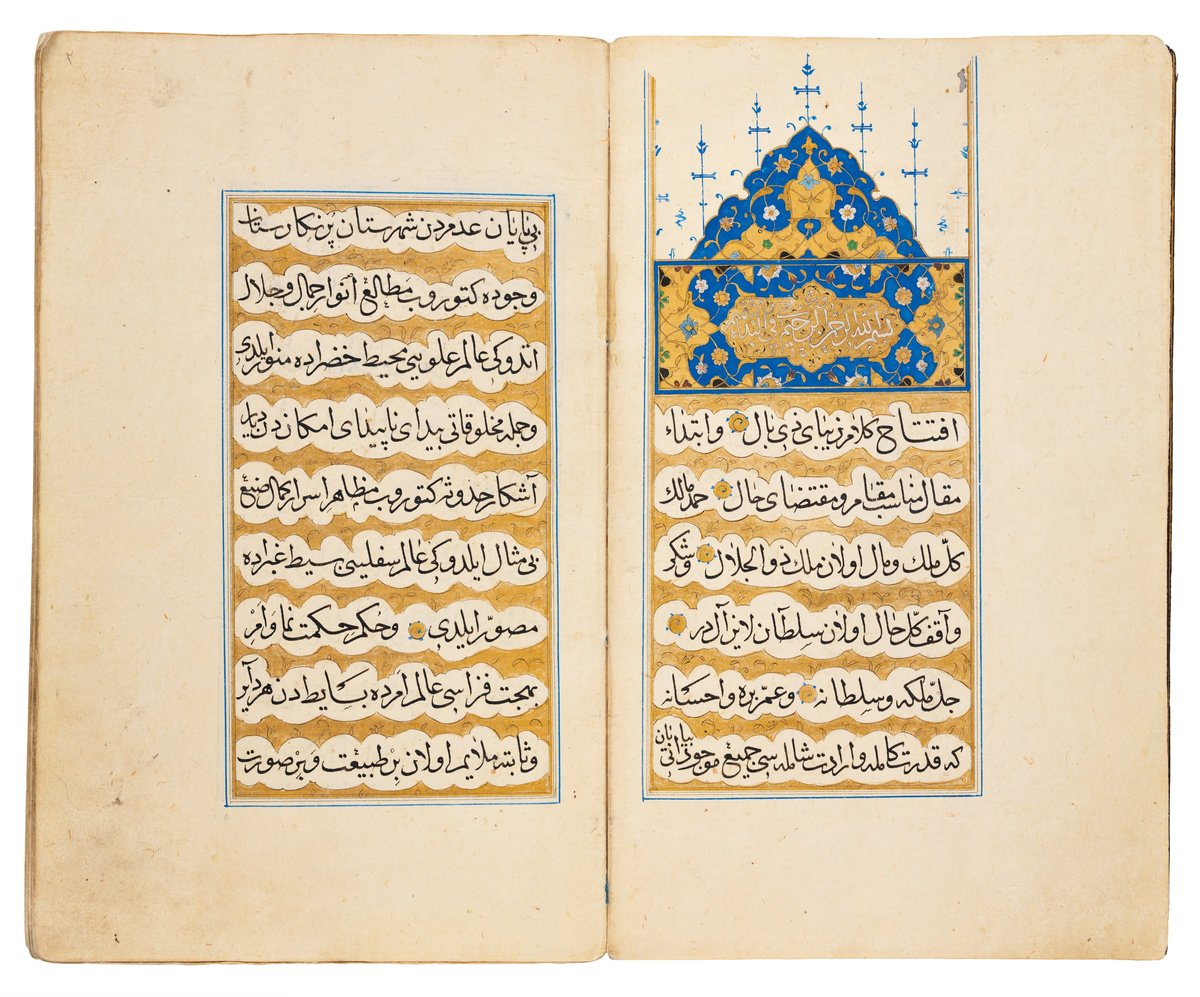 بسم الله الرحمن الرحيم
افتتاح كلام زيباى ذى بال وابتداء
مقال مناسب مقام ومقتضاى حال حمد مالك
كلّ ملك ومال اولان ملك ذو الجلال وشكر
واقف كلّ حال اولان سلطان لايزالدر
جلّ ملكه وسلطانه وعمّ برّه واحسانه
كه قدرت كامله وارادت شامله سى جميع موجوداتى
بى پايان عدمدن شهرستان پرنكارستان
وجوده كتوروب مطالع انوار جمال وجلال
اتدوكى عالم علويى محيط خضراده منوّر ايلدى
وجمله مخلوقاتى بيداى ناپيداى امكاندن ديار
آشكار حدوثه كتوروب مظاهر اسرار كمال صنع
بى مثال ايلدوكى عالم سفليى بسيط غبراده
مصوّر ايلدى وحكم حكمت نما وامر
بهجت فزاسى عالم امرده بسايطدن هر داير
وثابته ملايم اولان بر طبيعت وبر صورت